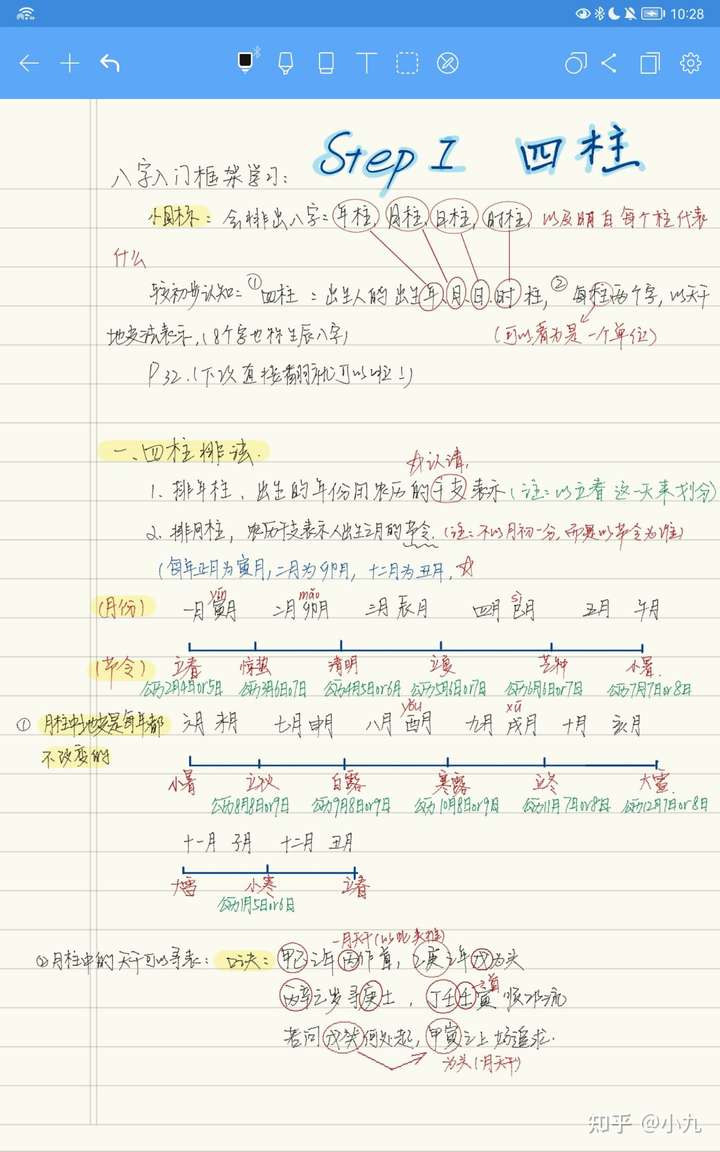 10:28
Step I 四柱
八字入门框架学习:
小目标: 会排出八字: 年柱, 月柱, 日柱, 时柱, 以及明白每个柱代表
什么
较初步认知: ① 四柱: 出生人的出生年.月.日.时柱, ② 每柱两个字, 以天干
地支法表示, (8个字也称生辰八字) (可以看为是一个单位)
P32. (下次直接翻就可以啦!)
一、四柱排法.
☆认清,
1. 排年柱, 出生的年份用农历的干支表示 (注: 以立春这一天来划分)
2. 排月柱, 农历干支表示人出生之月的节令. (注: 不以月初一分, 而是以节令为准)
(每年正月为寅月, 二月为卯月, 十二月为丑月. ☆
yín mǎo sì
(月份) 一月 寅月 二月 卯月 三月 辰月 四月 巳月 五月 午月
(节令) 立春 惊蛰 清明 立夏 芒种 小暑
公历2月4日or5日 公历3月6日or7日 公历4月5日or6日 公历5月6日or7日 公历6月6日or7日 公历7月7日or8日
yǒu xū
① 月柱中地支是每年都 六月 未月 七月 申月 八月 酉月 九月 戌月 十月 亥月
不改变的
小暑 立秋 白露 寒露 立冬 大雪
公历8月8日or9日 公历9月8日or9日 公历10月8日or9日 公历11月7日or8日 公历12月7日or8日
十一月 子月 十二月 丑月
大雪 小寒 立春
公历1月5日or6日
一月天干(以此类推)
② 月柱中的天干可以寻表: 口诀: 甲己之年丙作首, 乙庚之年戊为头
之首
丙辛之岁寻庚土, 丁壬壬寅顺水流
若问戊癸何处起, 甲寅之上好追求.
为头(一月天干)
知乎 @小九